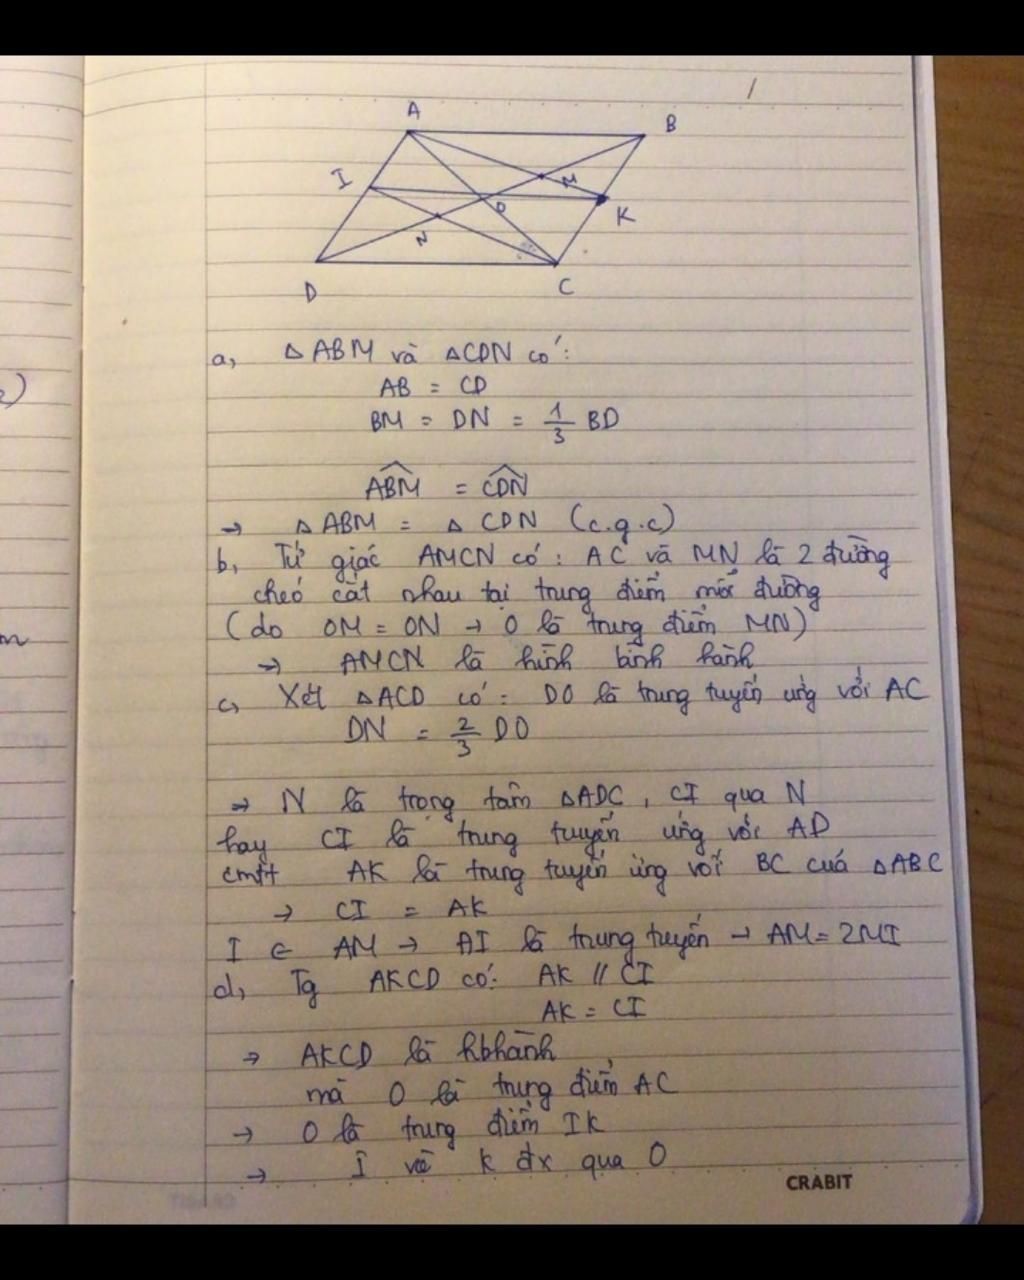 A
B
I
M
O
K
N
D
C
a, △ABM và △CDN có:
AB = CD
BM = DN = 1/3 BD
ABM = CDN
→ △ABM = △CDN (c.g.c)
b, Tứ giác AMCN có: AC và MN là 2 đường
chéo cắt nhau tại trung điểm mỗi đường
(do OM = ON → O là trung điểm MN)
→ AMCN là hình bình hành
c, Xét △ACD có: DO là trung tuyến ứng với AC
DN = 2/3 DO
→ N là trọng tâm △ADC, CI qua N
hay CI là trung tuyến ứng với AD
cmtt AK là trung tuyến ứng với BC của △ABC
→ CI = AK
I ∈ AM → AI là trung tuyến → AM = 2MI
d, Tg AKCD có: AK // CI
AK = CI
→ AKCD là hbhành
mà O là trung điểm AC
→ O là trung điểm IK
→ I và K đx qua O
CRABIT